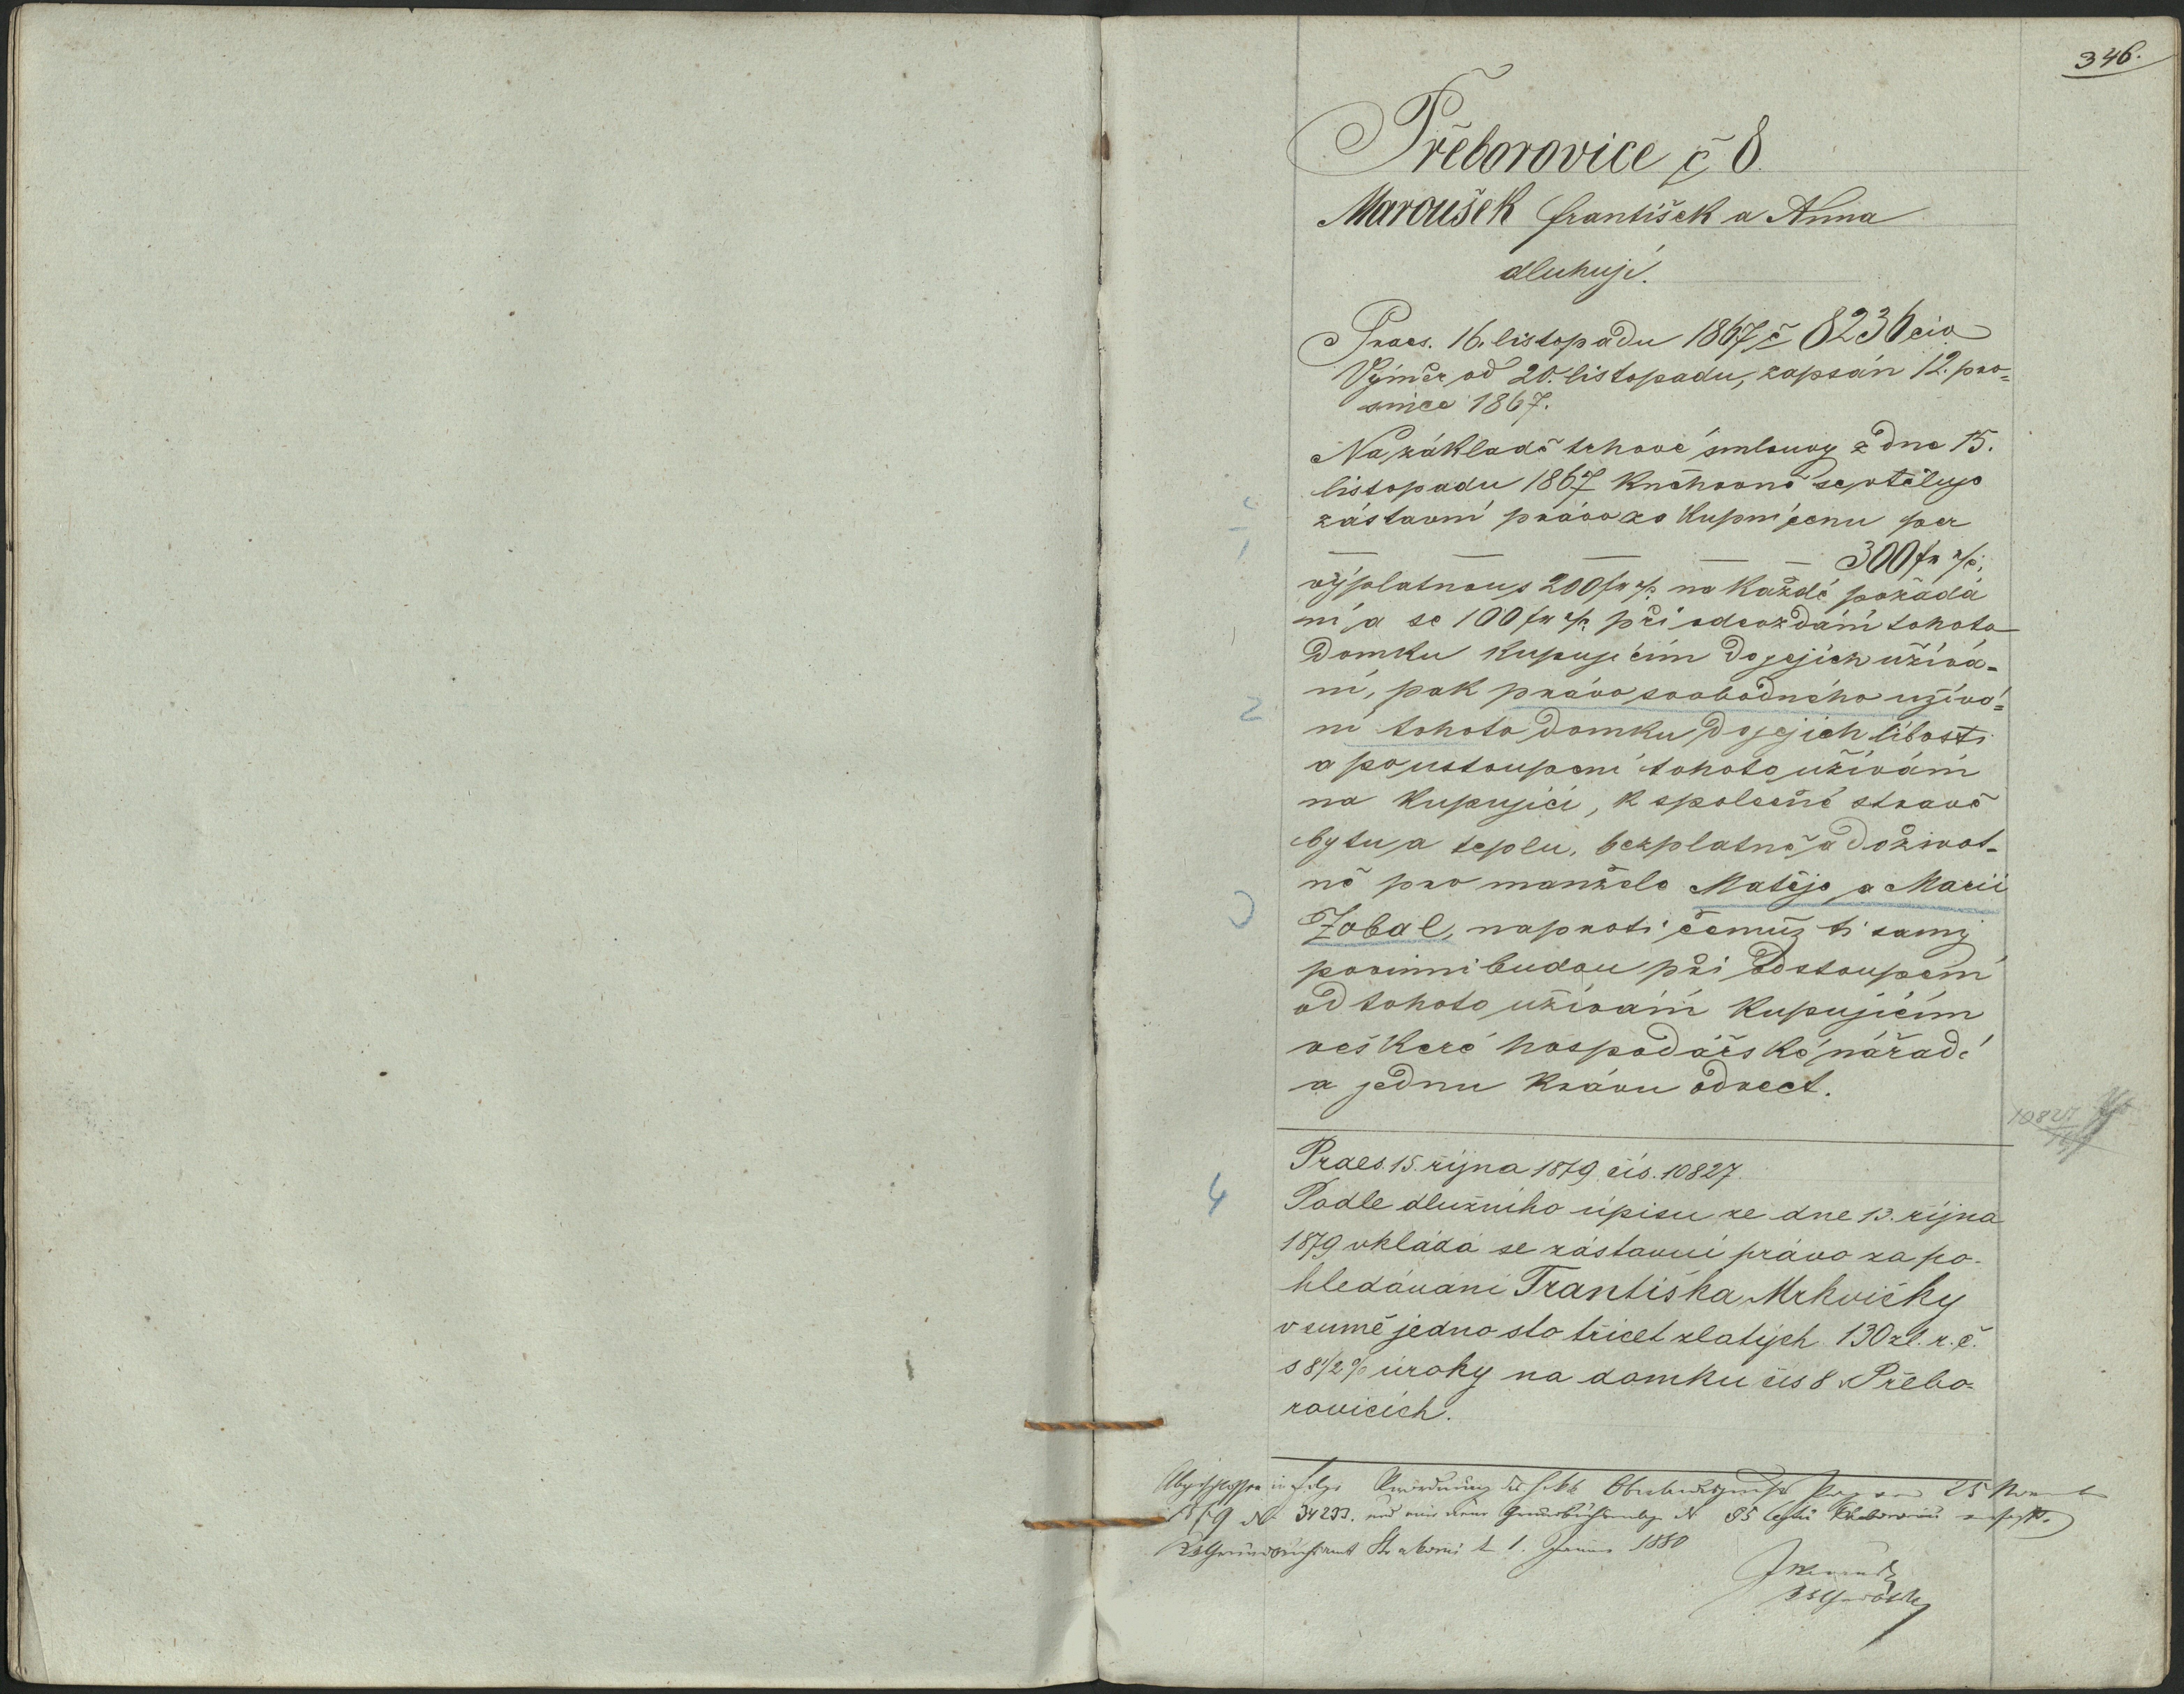 346.
Přeborovice č 8.
Maroušek František a Anna
dluhují.
Praes. 16. listopadu 1867 č 8236 civ
Výměr od 20. listopadu, zapsán 12. pro=
since 1867.
Na základě trhové smlouvy z dne 15.
listopadu 1867 knihovně se vtěluje
zástavní právo za kupní cenu per
1
300 fr
výplatnou s 200 fr na každé požádá
ní, a se 100 fr při odevzdání tohoto
domku kupujícím do jejich užívá-
ní, pak právo svobodného užívá=
2
ní tohoto domku do jejich libosti
a po ustoupení tohoto užívání
na kupující, k společné stravě
bytu, a teplu, bezplatně, a doživot-
ně pro manžele Matěje a Marii
3
Zobal, naproti čemuž ti samý
povinni budou při odstoupení
od tohoto užívání kupujícím
veškeré hospodářské nářadí
a jednu krávu odvect.
10827
Praes. 15. října 1879 čís. 10827.
4
Podle dlužního úpisu ze dne 13. října
1879 vkládá se zástavní právo za po-
hledávání Františka Mrkvičky
v sumě jedno sto třicet zlatých 130 zl. r. č.
s 8 1/2 % úroky na domku čís 8 v Přebo-
rovicích.
Abgeschlossen in Folge Verordnung des k k Oberlandesgerichts Prag vom 25 November
1879 N 34233. und eine neue Grundbuchseinlage N 85
Grundbuchsamt Strakonic d. 1. Januar 1880